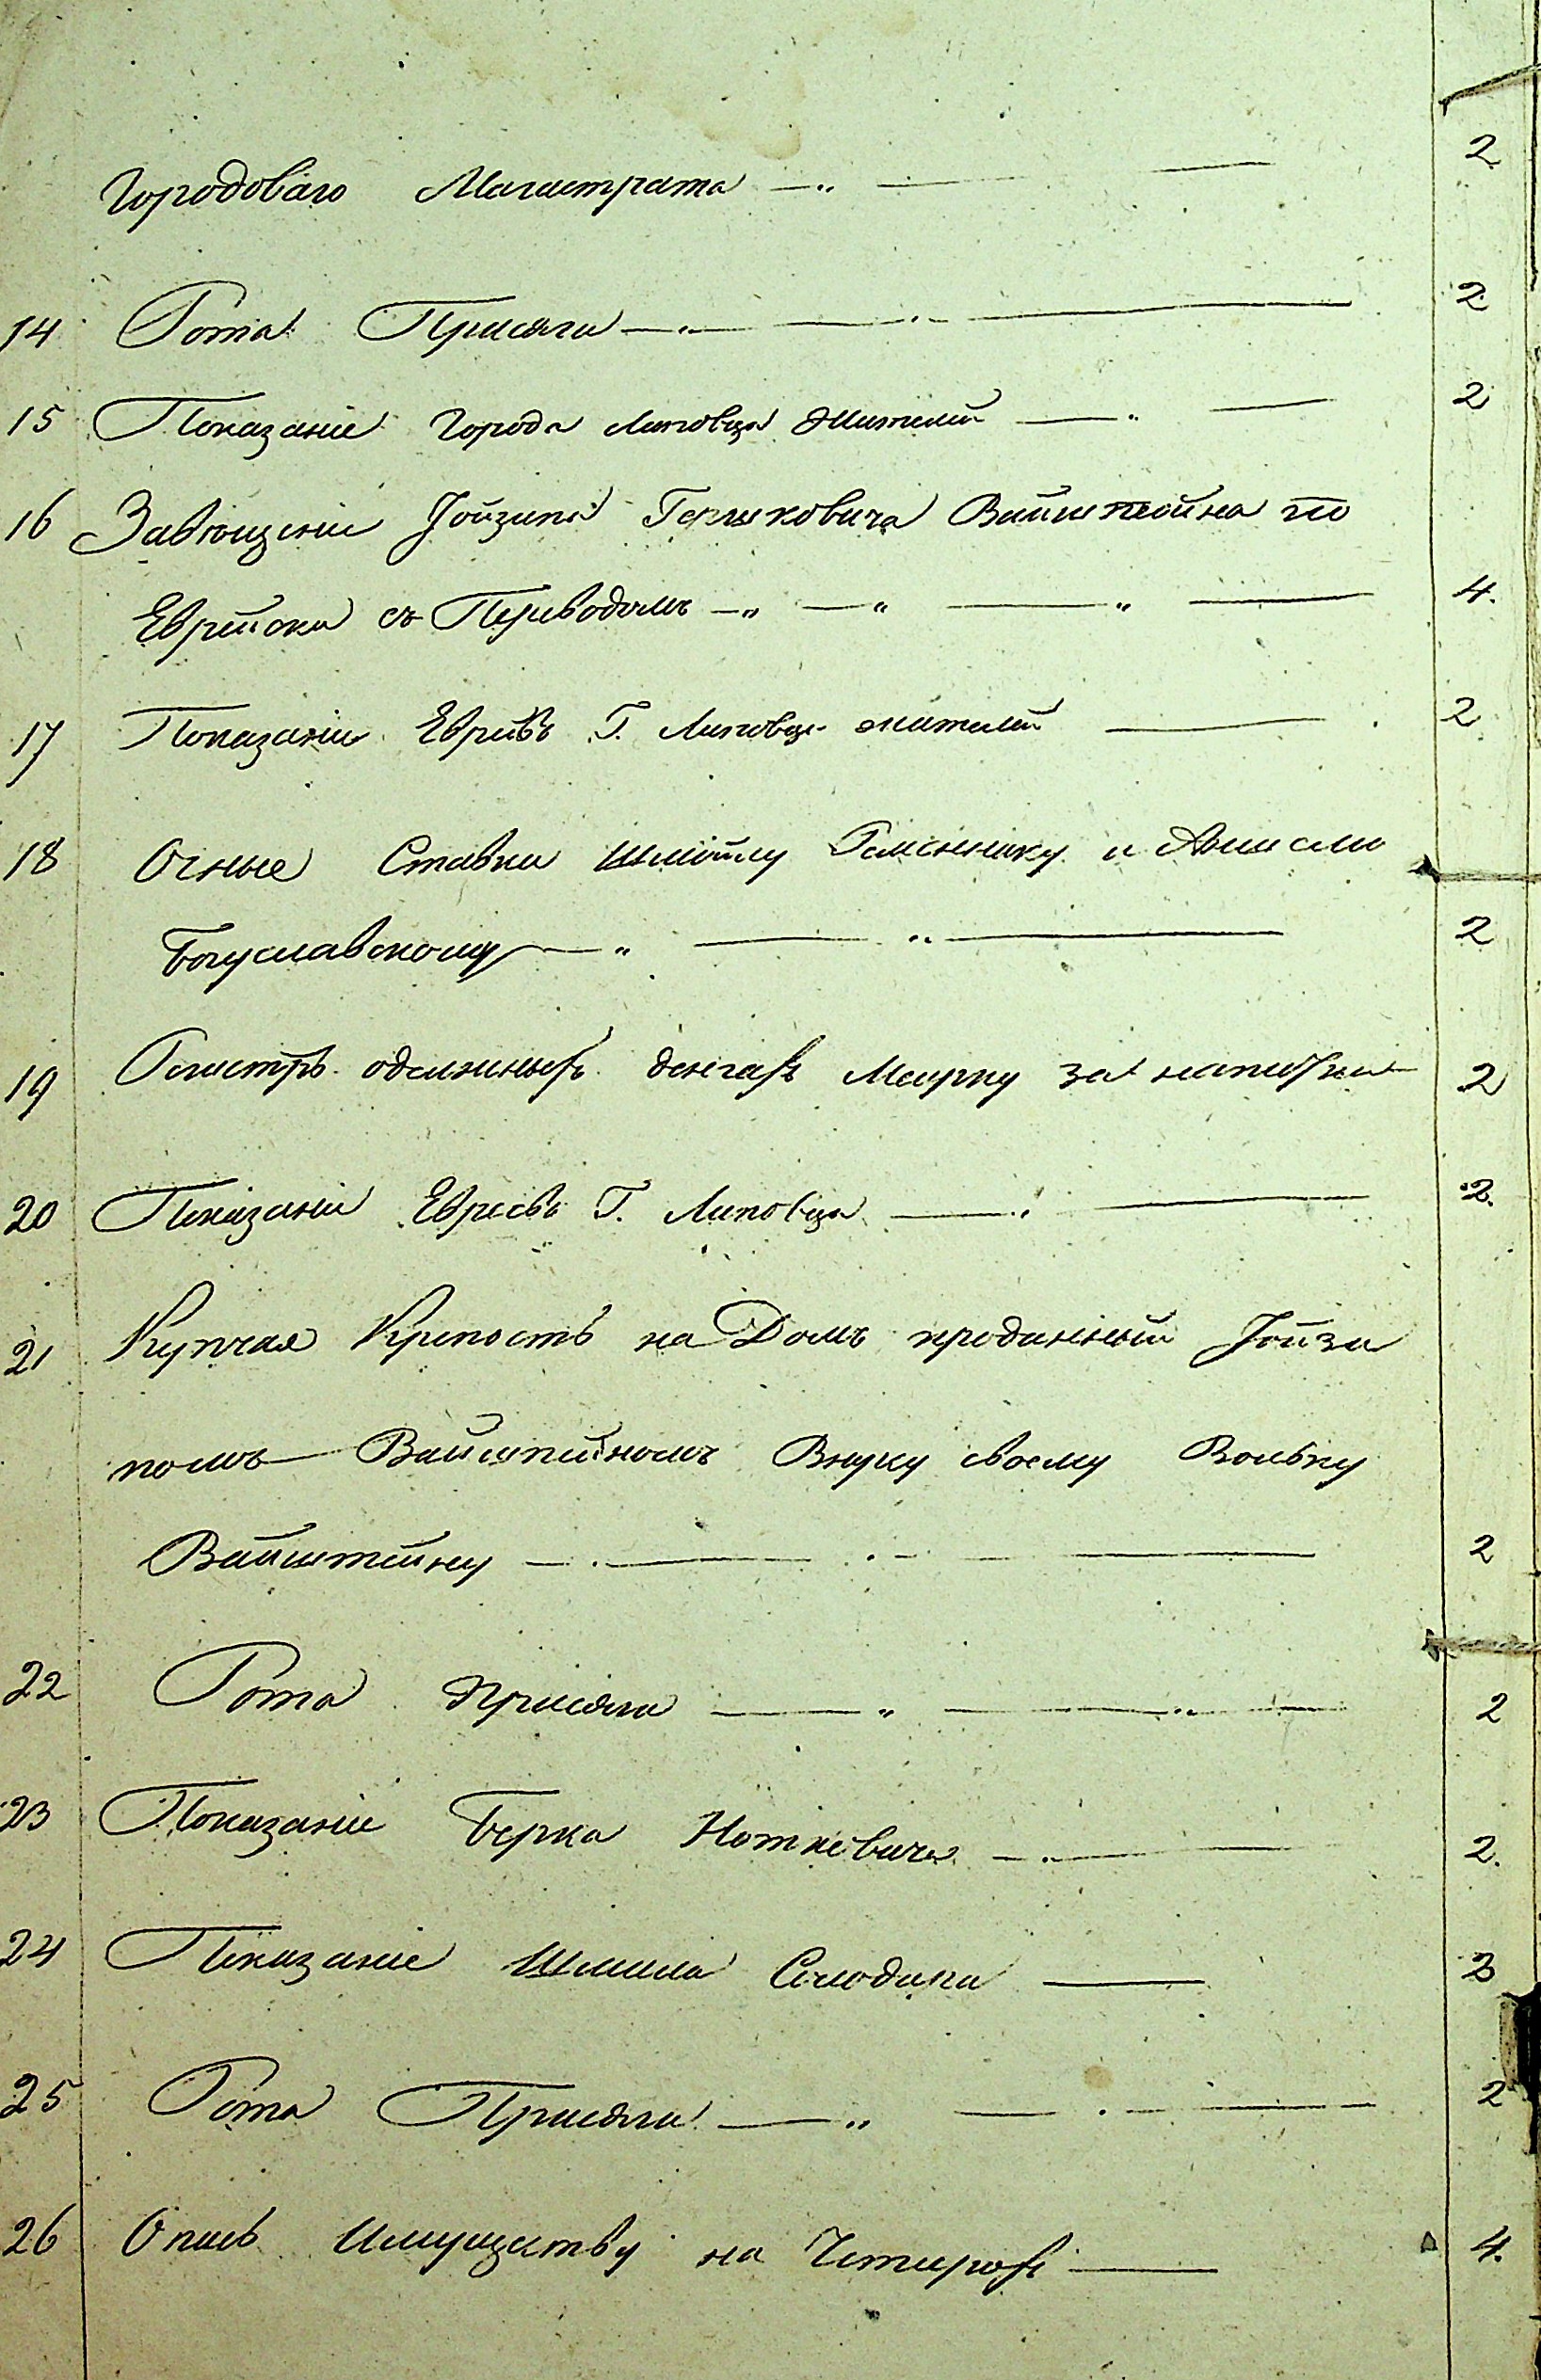 Городоваго Магистрата — „ — — 2
14 Рота Присяги — „ — „ — 2
15 Показаніе Города Липовца Жителей — „ — 2
16 Завѣщеніе Іойзипа Гершковича Вайнштейна по
Еврейски съ Переводомъ — „ — „ — „ — 4.
17 Показаніе Евреевъ Г. Липовца жителей — 2
18 Очные Ставки Шмойлу и
Богуславскому — „ — „ — 2
19 Регистръ одолжныхъ денгахъ Меирку за напитки 2
20 Показаніе Евреевъ Г. Липовца — „ — 2.
21 Купчая Крепость на Домъ проданный Іойзи
помъ Вайнштейномъ Внуку своему Вольку
Вайнштейну — . — . — — 2
22 Рота присяги — „ — „ — 2
23 Показаніе Берка Ноткевича — . — 2.
24 Показаніе Шмила — 2
25 Рота Присяги — „ — . — 2
26 Опись Имуществу на Четирохъ — 4.